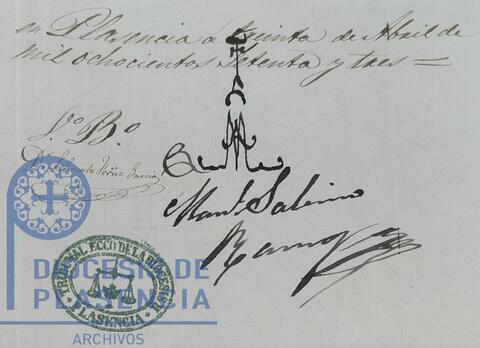 en Plasencia á treinta de Abril de
mil ochocientos setenta y tres =
Vº Bº
Manl Sabino
Ramos
TRIBUNAL ECCO DE LA DIOCESIS
PLASENCIA
DIOCESIS DE
PLASENCIA
ARCHIVOS